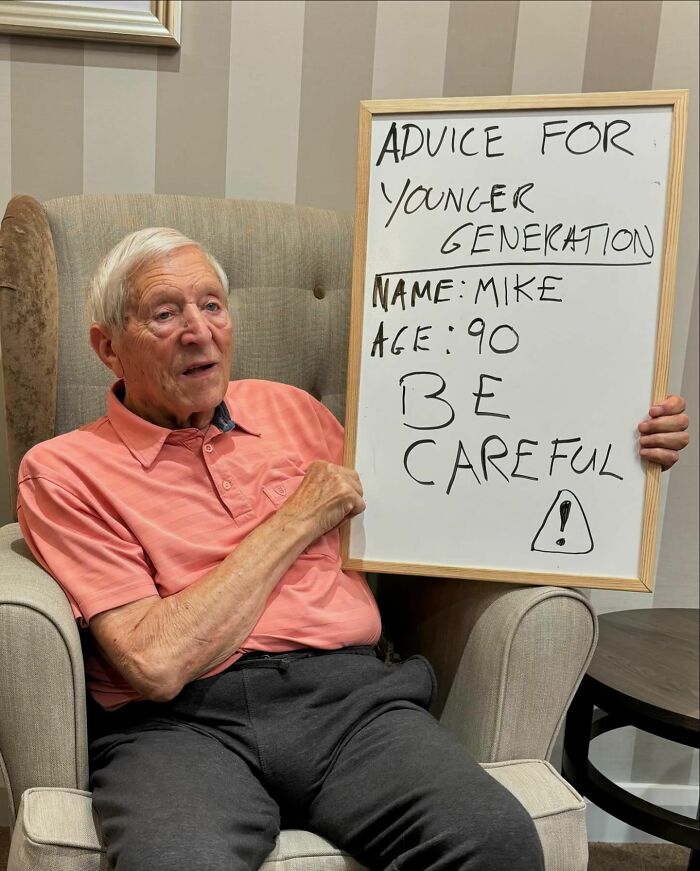 ADVICE FOR
YOUNGER
GENERATION
NAME: MIKE
AGE: 90
BE
CAREFUL
!